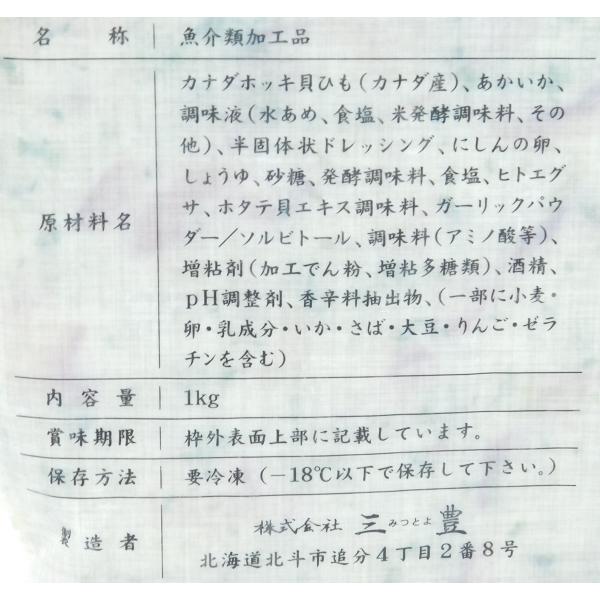 名称 魚介類加工品
原材料名 カナダホッキ貝ひも(カナダ産)、あかいか、
調味液(水あめ、食塩、米発酵調味料、その
他)、半固体状ドレッシング、にしんの卵、
しょうゆ、砂糖、発酵調味料、食塩、ヒトエグ
サ、ホタテ貝エキス調味料、ガーリックパウ
ダー/ソルビトール、調味料(アミノ酸等)、
増粘剤(加工でん粉、増粘多糖類)、酒精、
pH調整剤、香辛料抽出物、(一部に小麦・
卵・乳成分・いか・さば・大豆・りんご・ゼラ
チンを含む)
内容量 1kg
賞味期限 枠外表面上部に記載しています。
保存方法 要冷凍(-18℃以下で保存して下さい。)
製造者 株式会社 三みつとよ豊
北海道北斗市追分4丁目2番8号